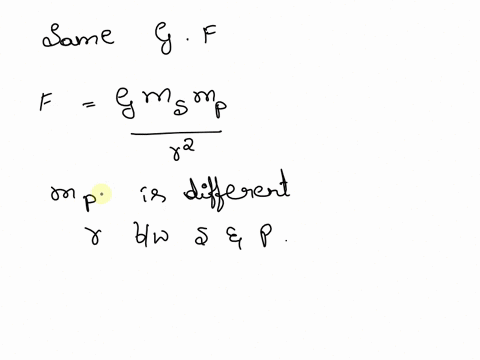 Same G.F
F = G m_S m_P / r²
m_P is different
r b/w S & P.